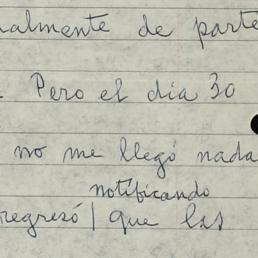 ualmente de parte
. Pero el dia 30
no me llegó nada
notificando
regresó | que las